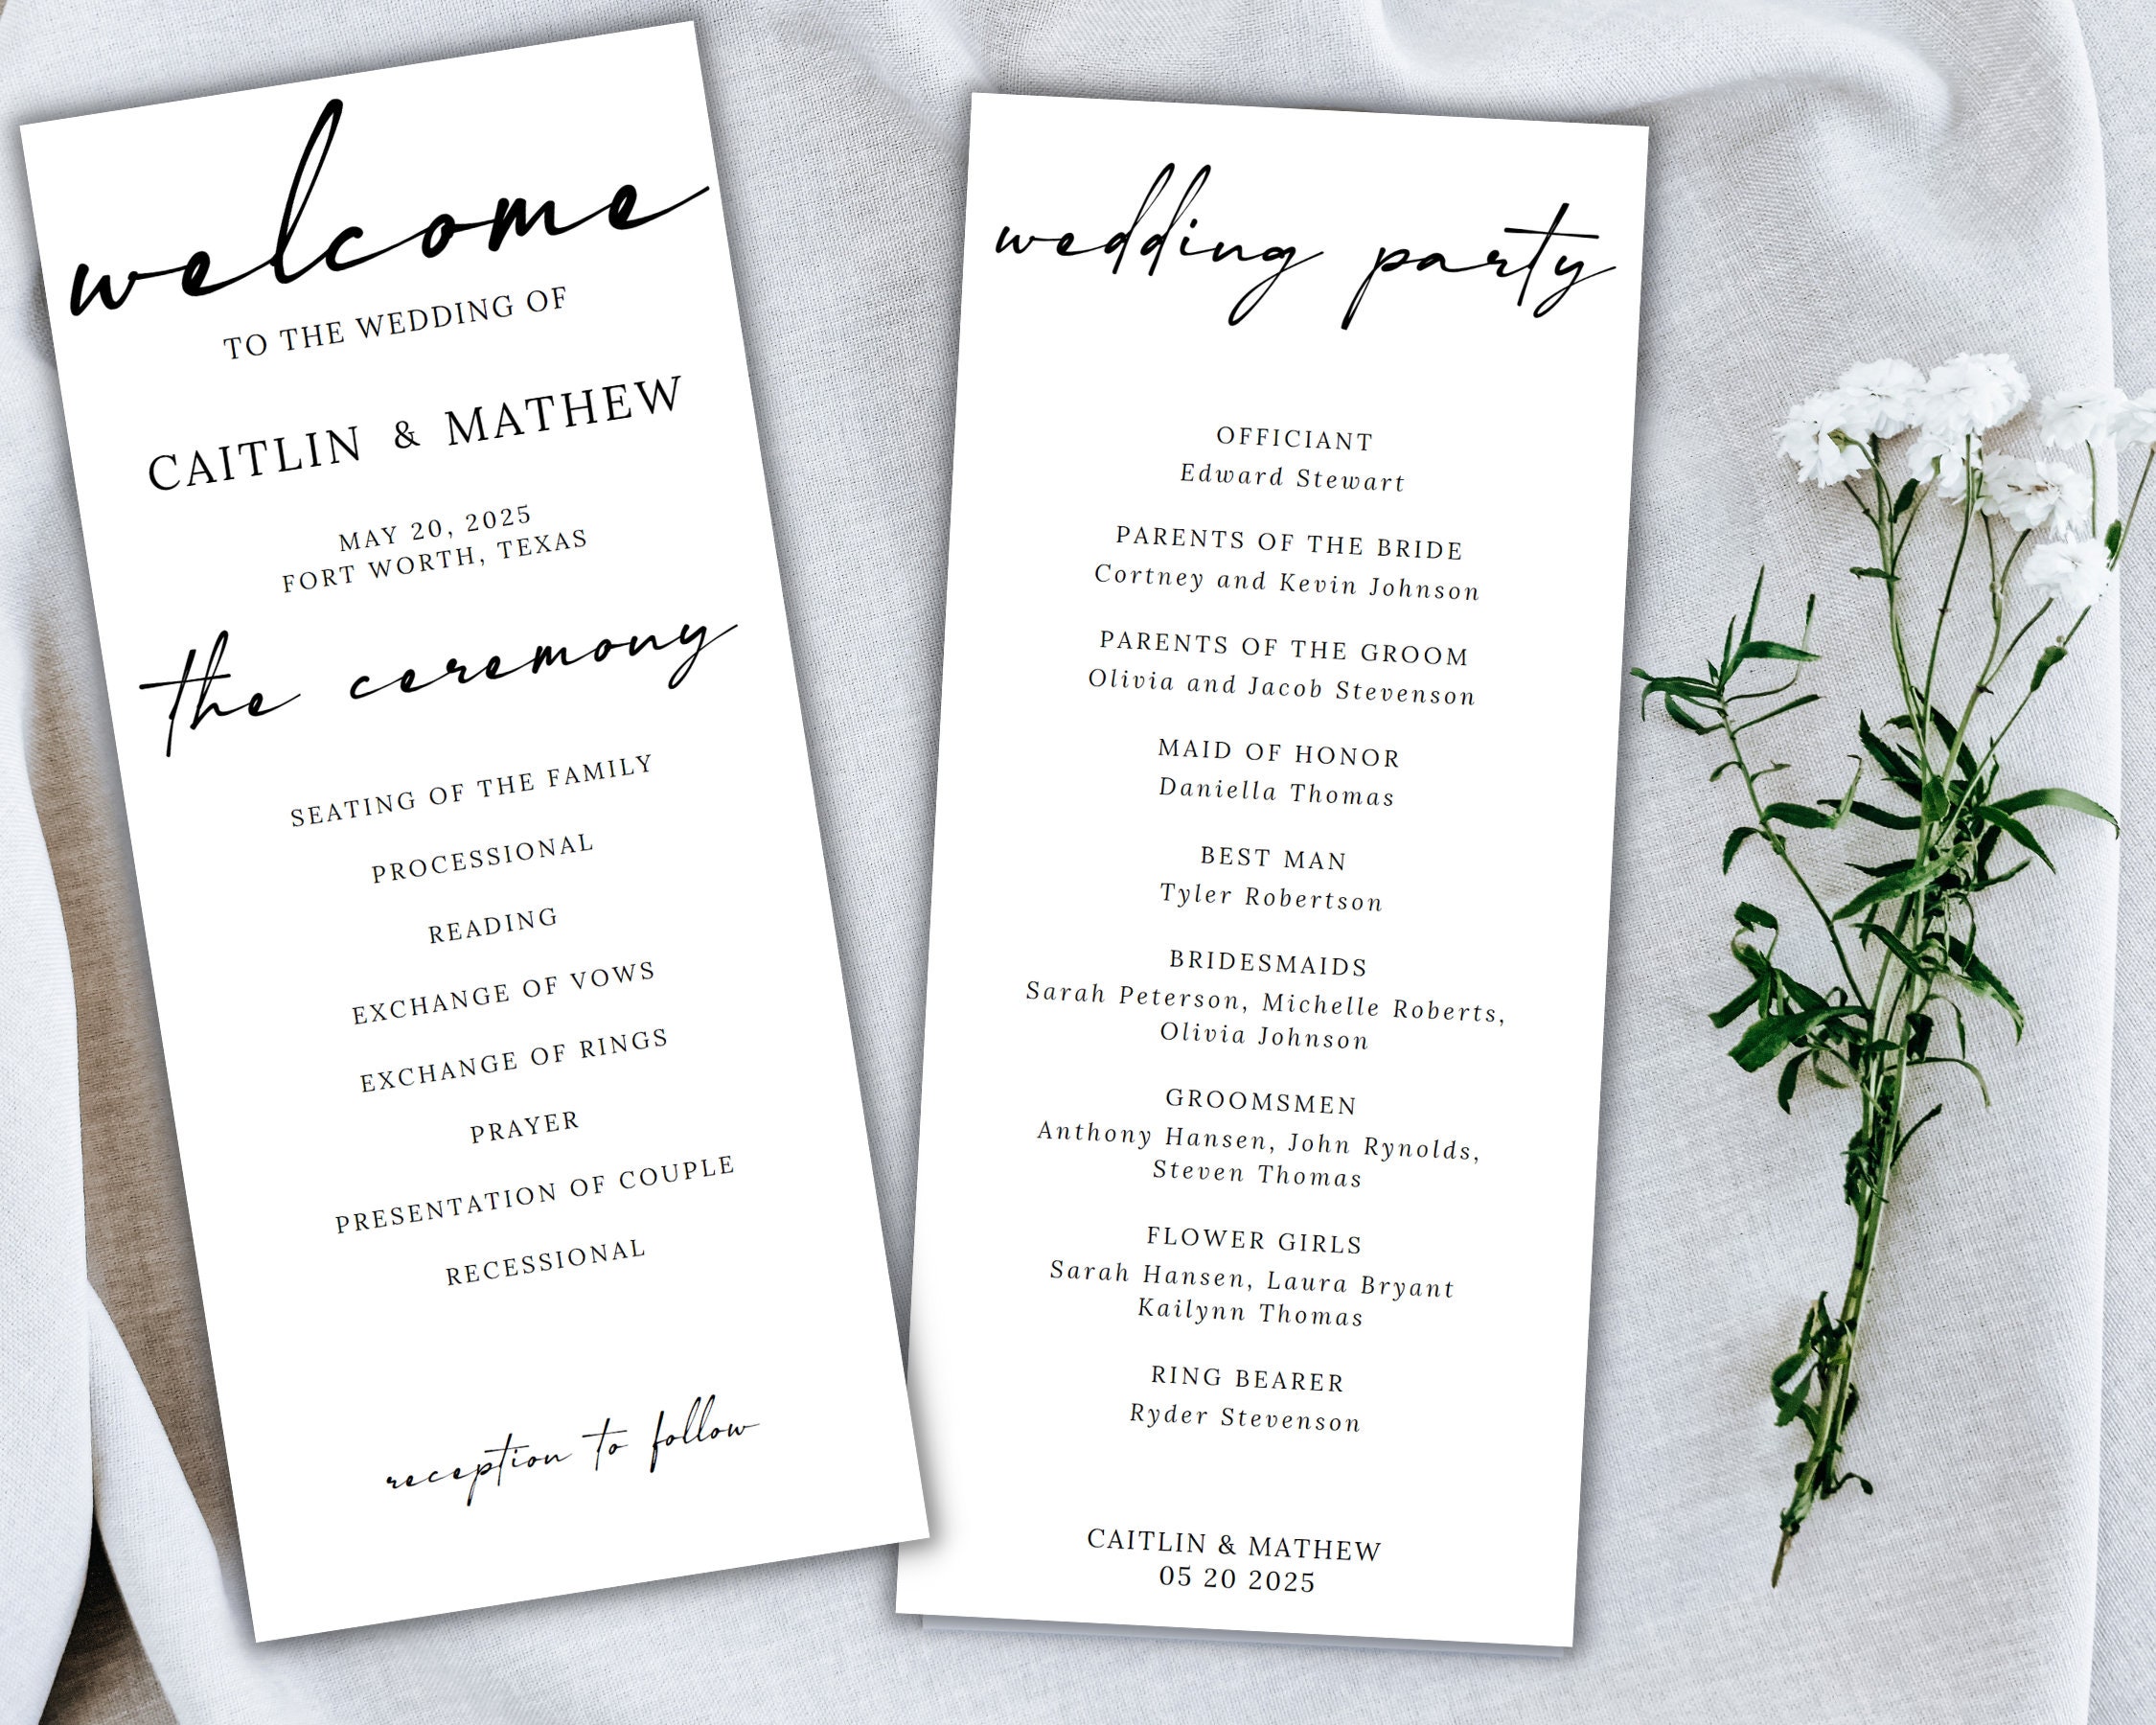 welcome
TO THE WEDDING OF
CAITLIN & MATHEW
MAY 20, 2025
FORT WORTH, TEXAS
the ceremony
SEATING OF THE FAMILY
PROCESSIONAL
READING
EXCHANGE OF VOWS
EXCHANGE OF RINGS
PRAYER
PRESENTATION OF COUPLE
RECESSIONAL
reception to follow
wedding party
OFFICIANT
Edward Stewart
PARENTS OF THE BRIDE
Cortney and Kevin Johnson
PARENTS OF THE GROOM
Olivia and Jacob Stevenson
MAID OF HONOR
Daniella Thomas
BEST MAN
Tyler Robertson
BRIDESMAIDS
Sarah Peterson, Michelle Roberts,
Olivia Johnson
GROOMSMEN
Anthony Hansen, John Rynolds,
Steven Thomas
FLOWER GIRLS
Sarah Hansen, Laura Bryant
Kailynn Thomas
RING BEARER
Ryder Stevenson
CAITLIN & MATHEW
05 20 2025